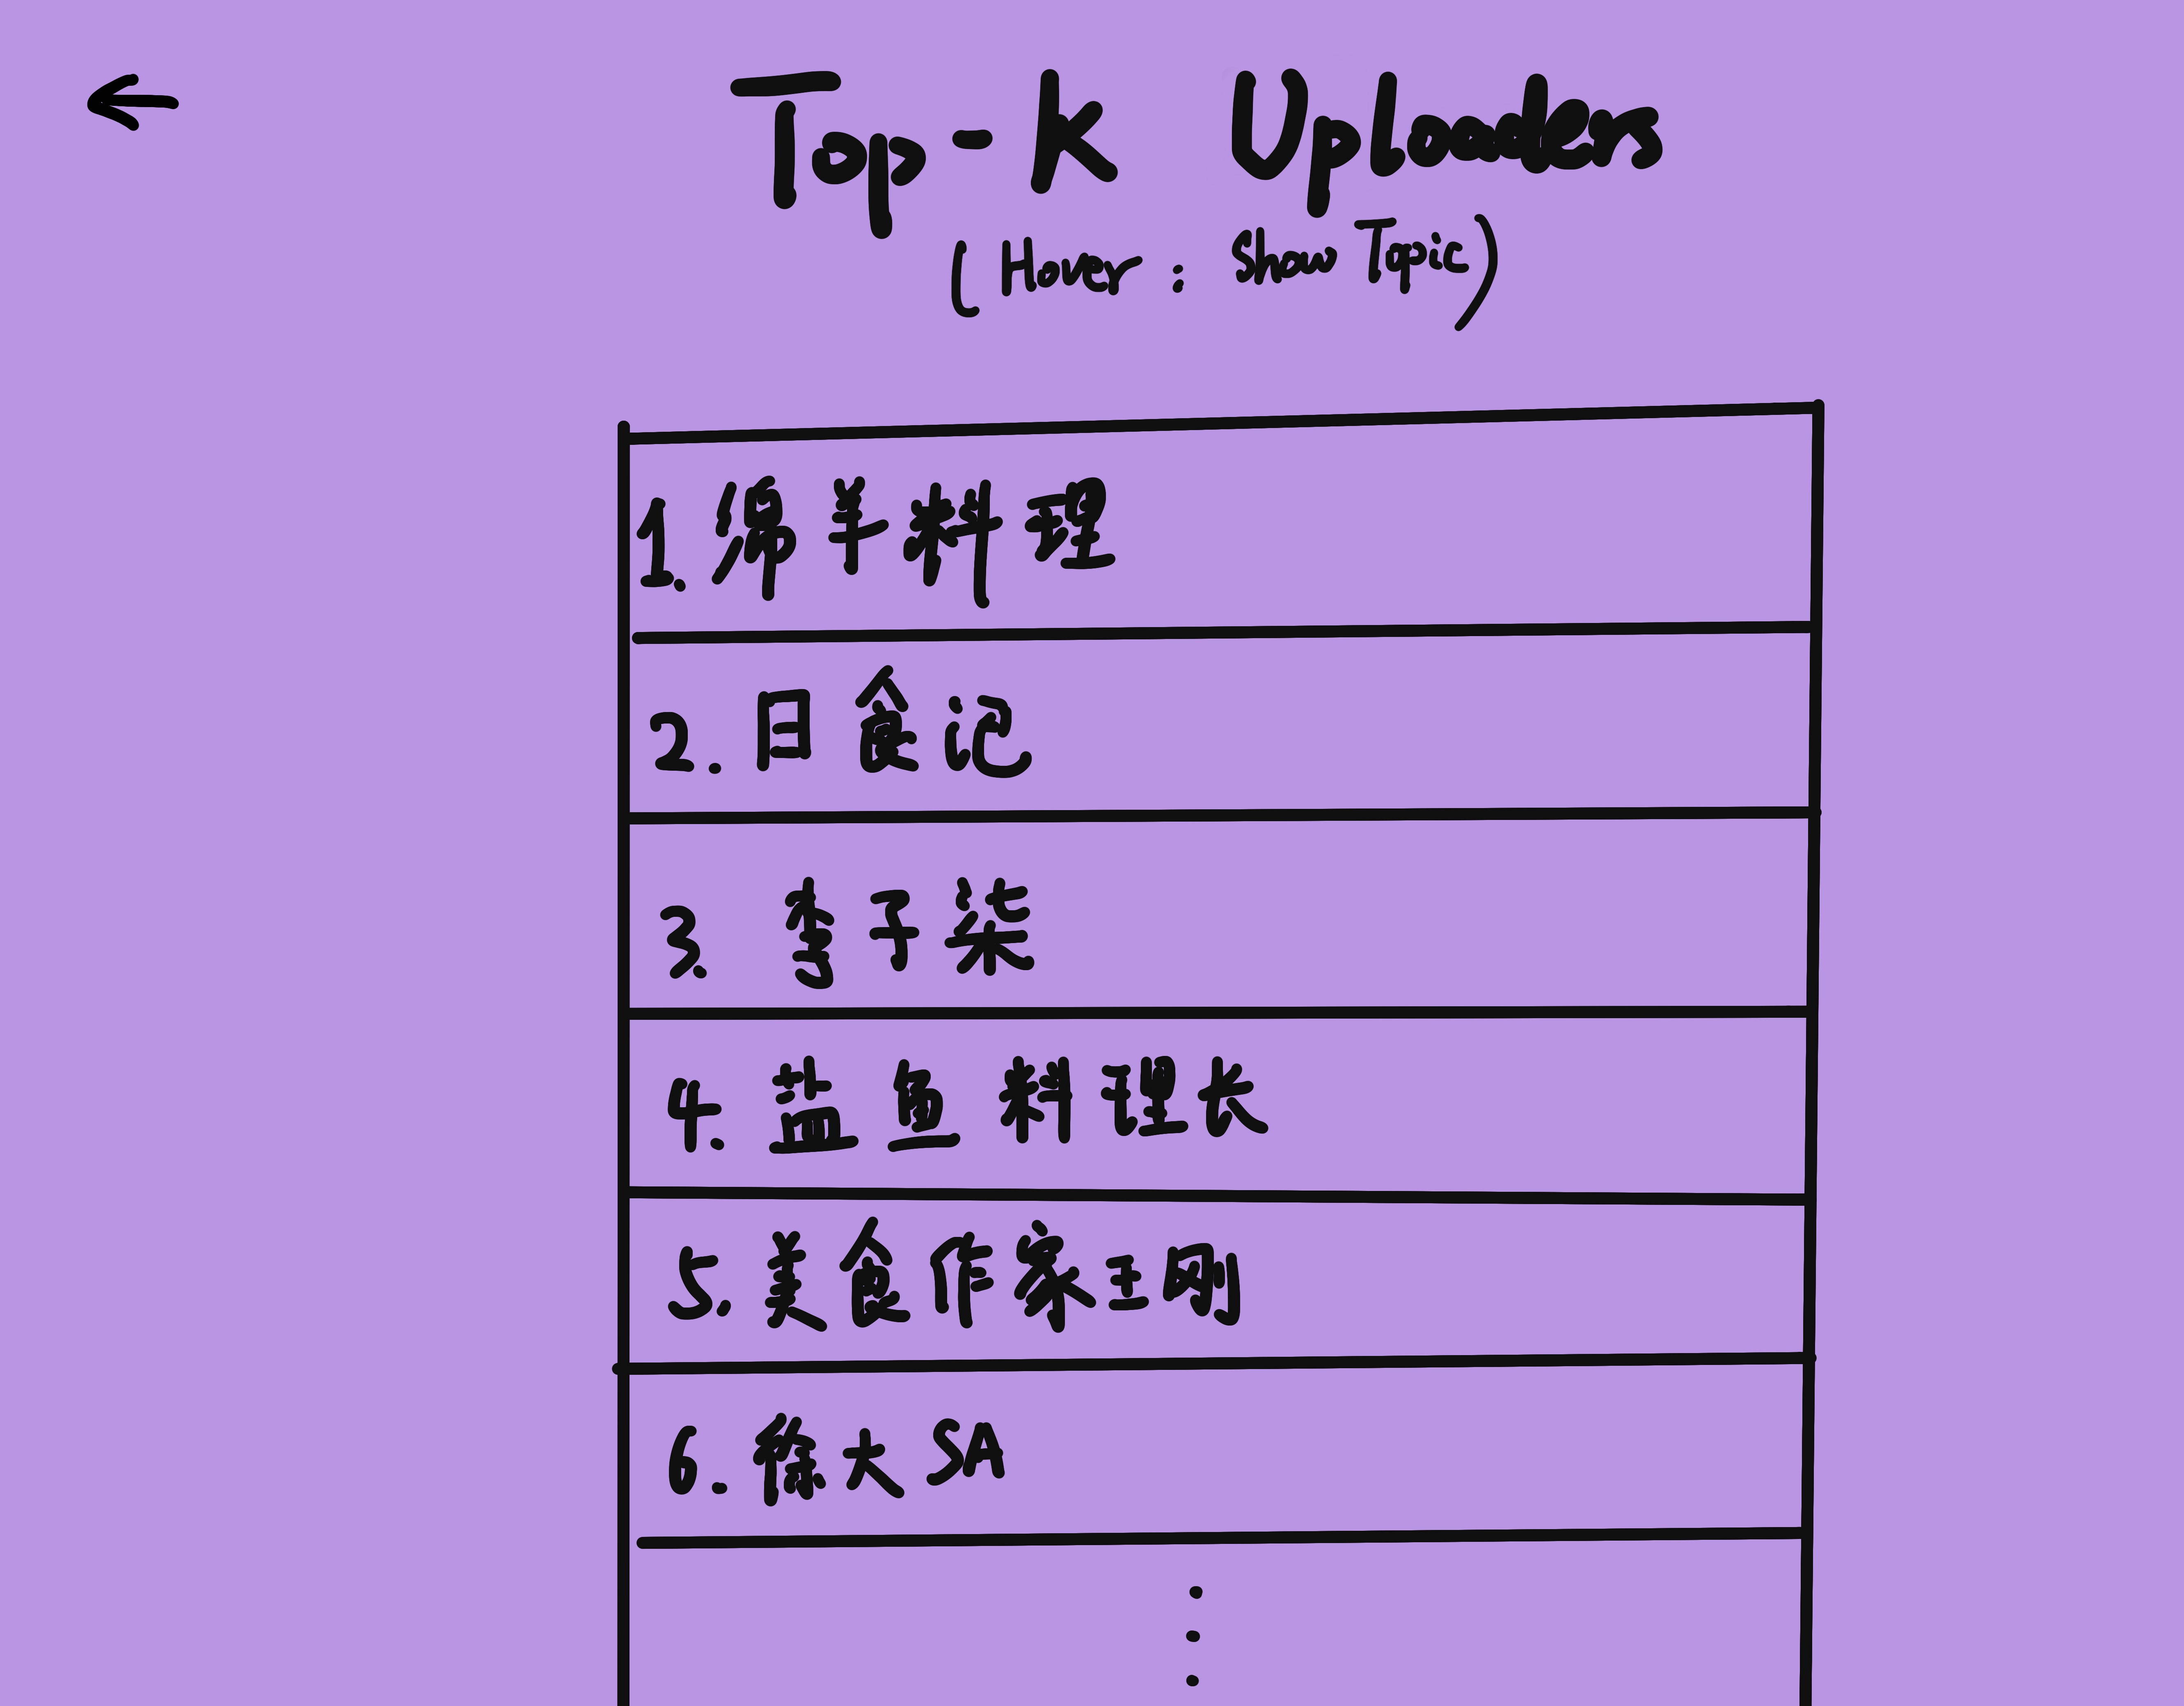 Top-K Uploaders
(Hover : Show Topic)
1. 绵羊料理
2. 日食记
3. 李子柒
4. 盐鱼料理长
5. 美食作家王刚
6. 徐大SA